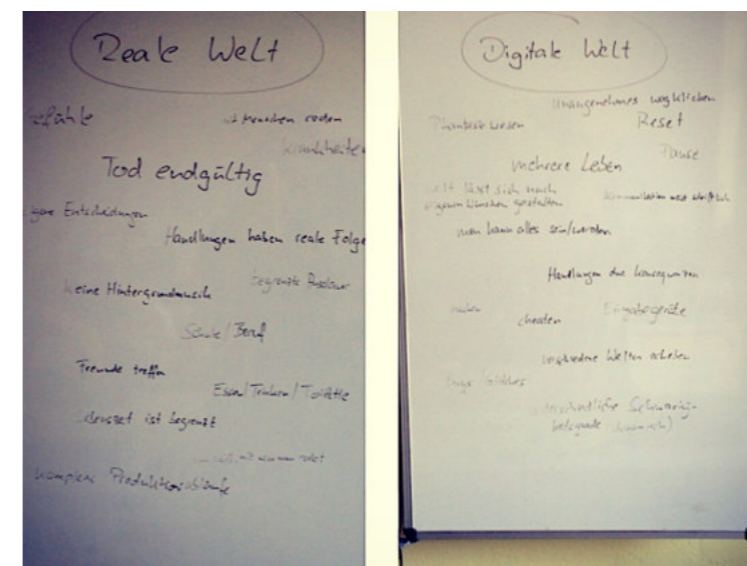 Reale Welt
Gefühle
Menschen reden
Krankheiten
Tod endgültig
eigene Entscheidungen
Handlungen haben reale Folge
keine Hintergrundmusik
begrenzte
Schule/Beruf
Freunde treffen
Essen/Trinken/Toilette
Lebenszeit ist begrenzt
man redet
komplexe Produktionsabläufe
Digitale Welt
Unangenehmes wegklicken
Phantasiewesen
Reset
Pause
mehrere Leben
Welt lässt sich nach
eigenen Wünschen gestalten
Kommunikation meist schriftlich
man kann alles sein/werden
Handlungen ohne Konsequenzen
cheaten
Eingabegeräte
verschiedene Welten erleben
Bugs/Glitches
unterschiedliche Schwierig-
keitsgrade (dynamisch)